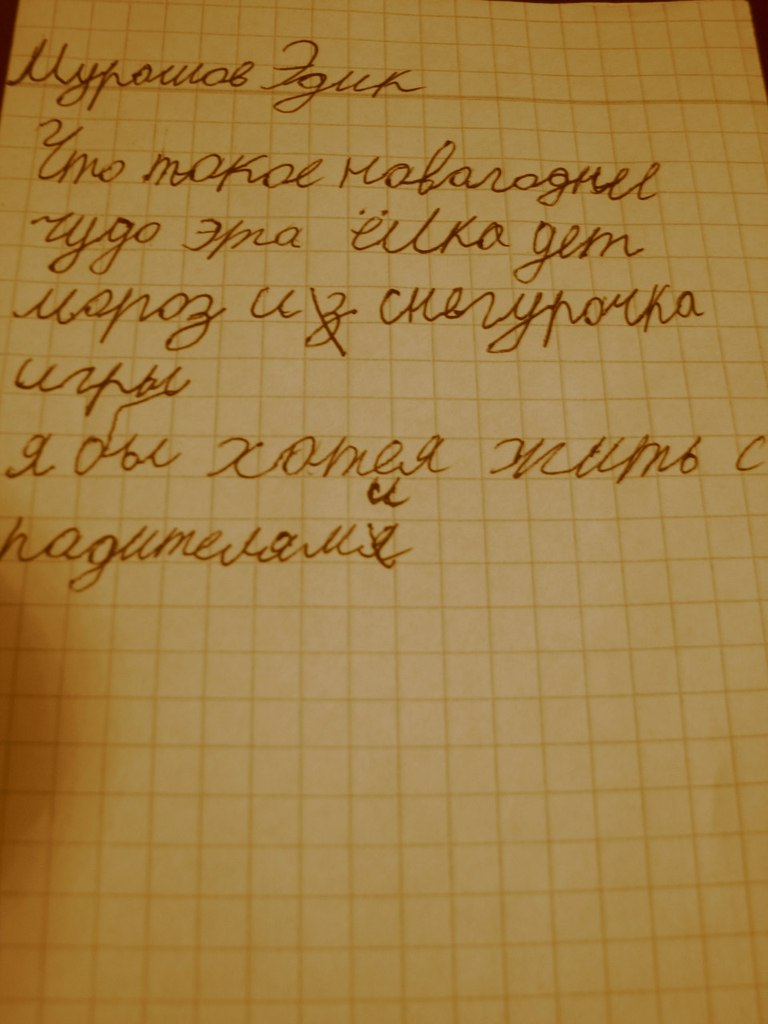 Мурашов Эдик
Что такое навагодние
чудо эта ёлка дет
мороз и снегурочка
игры
я бы хотел жить с
радителями